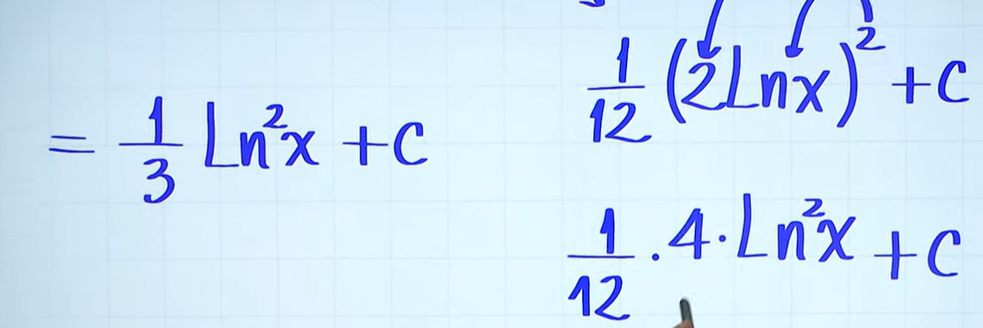 = 1/3 Ln²x + C
1/12 (2Lnx)² + C
1/12 · 4 · Ln²x + C